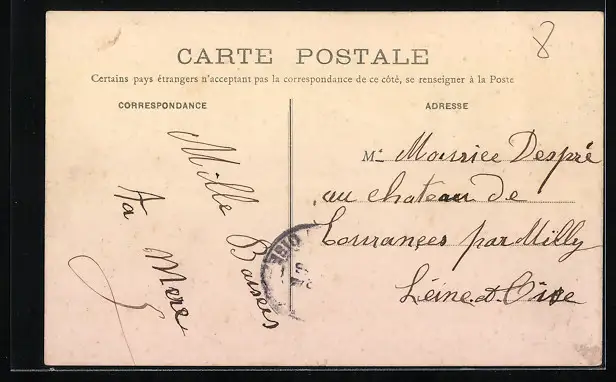 8
CARTE POSTALE
Certains pays étrangers n'acceptant pas la correspondance de ce côté, se renseigner à la Poste
CORRESPONDANCE
ADRESSE
Mille Baisers
Ta Mere
M. Maurice Despré
au chateau de
Courançes par Milly
Seine & Oise